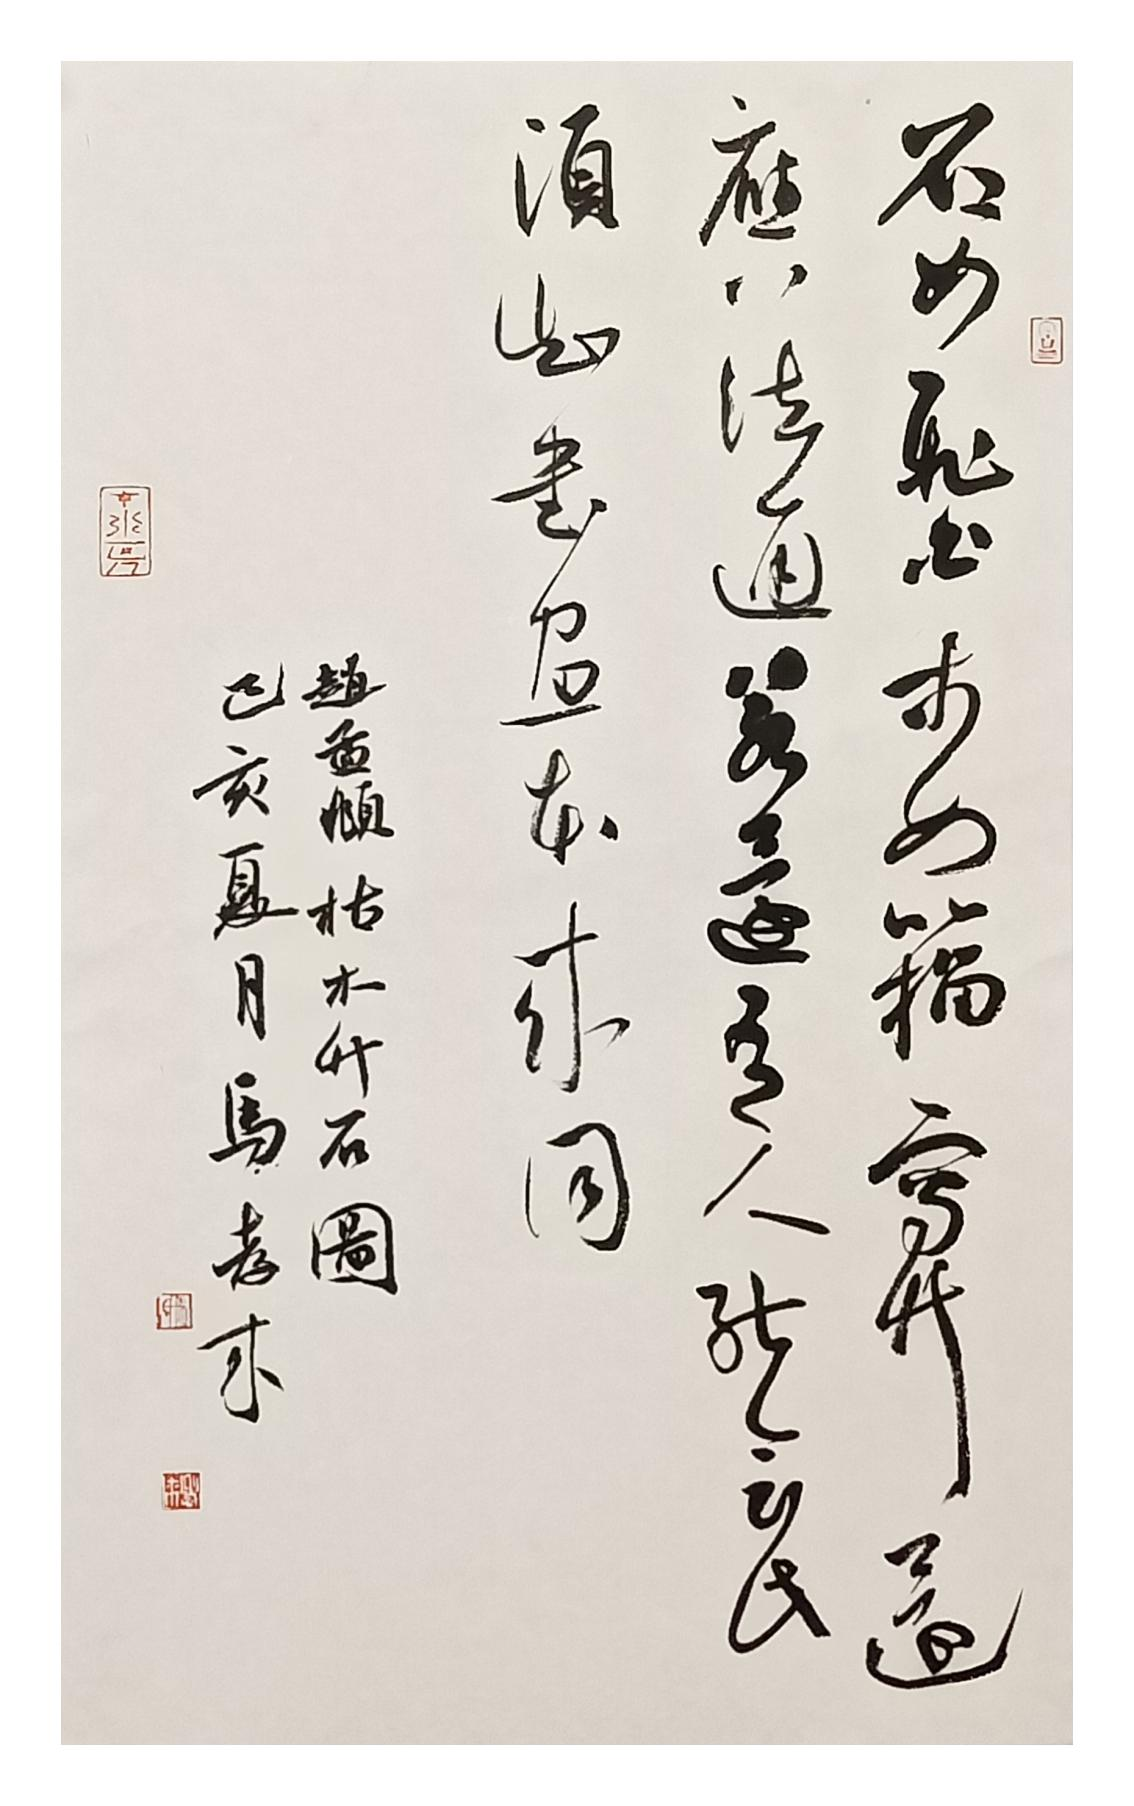 石如飛白木如籀寫竹還
應八法通若還有人能會此
須知書畫本來同
趙孟頫枯木竹石圖
己亥夏月馬孝來